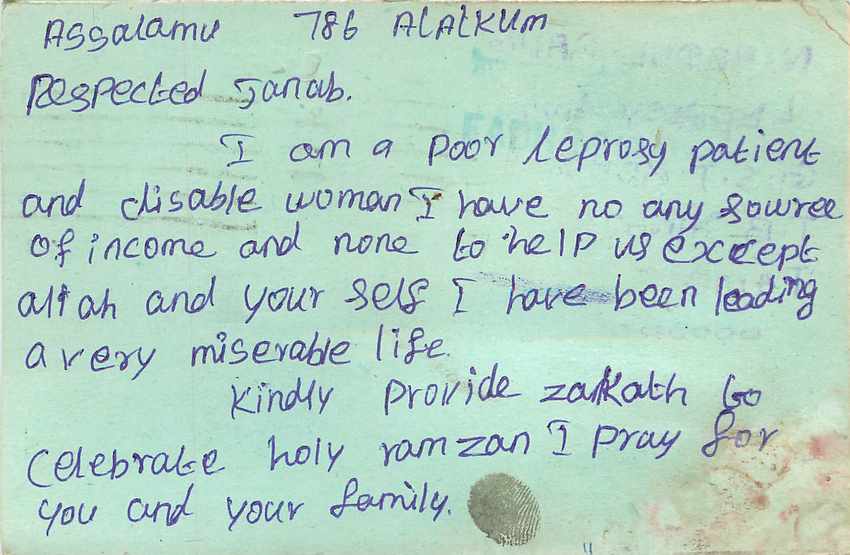 Assalamu 786 ALALKUM
Respected Janab.
I am a poor leprosy patient
and disable woman I have no any source
of income and none to help us except
allah and your self I have been leading
a very miserable life.
Kindly provide zakkath to
celebrate holy ramzan I pray for
you and your family.